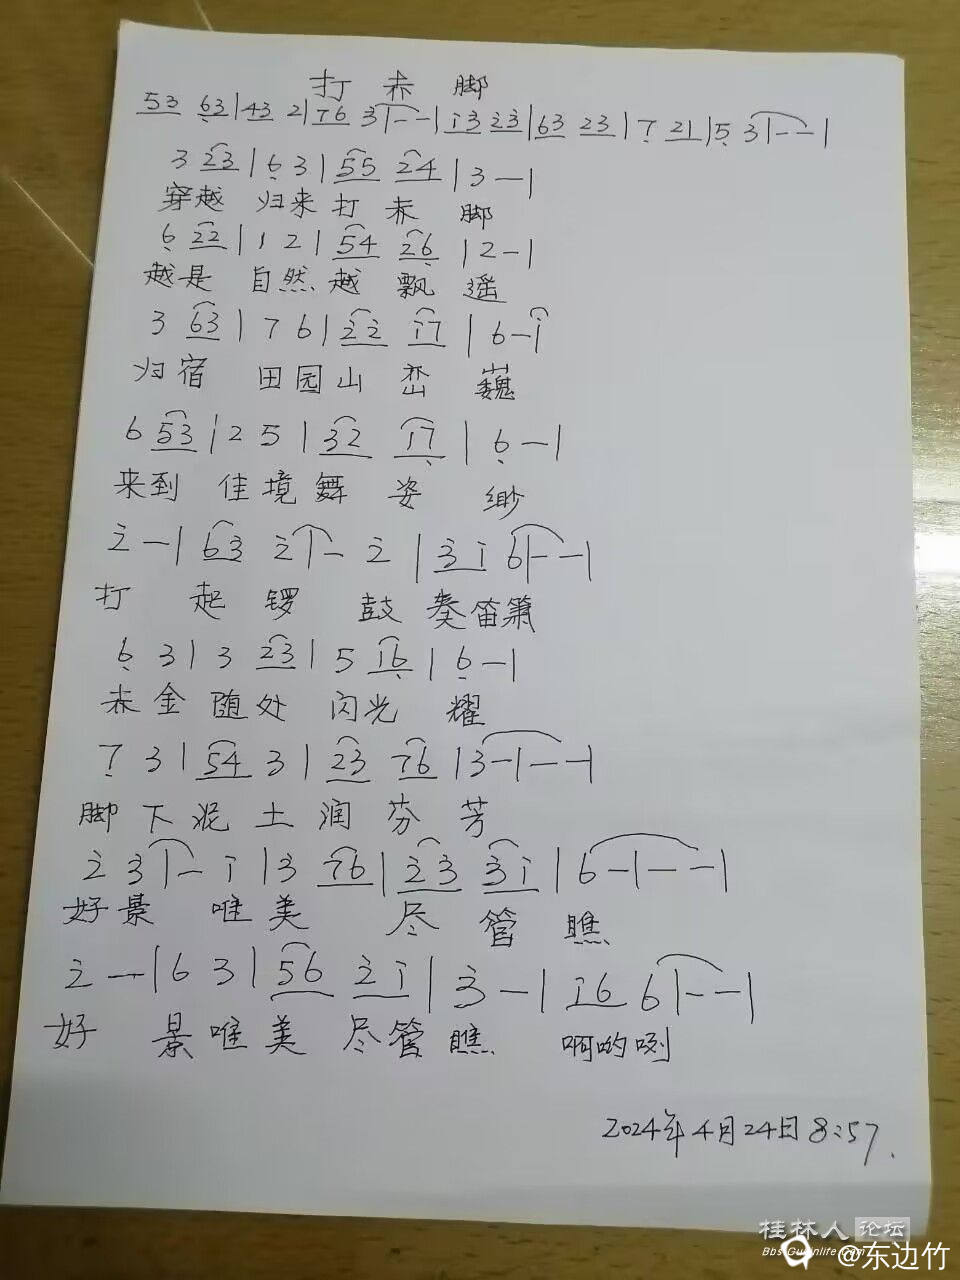 打赤脚
53 63|43 2|76 3|--|i3 23|63 23|7 21|5 3|--|
3 23|6 3|55 24|3-|
穿越 归来 打 赤 脚
6 22|1 2|54 26|2-|
越是 自然 越 飘 遥
3 63|7 6|22 i7|6-i
归宿 田园山 峦 巍
6 53|2 5|32 i7|6-|
来到 佳境舞 姿 缈
2-|63 2|- 2|3i 6|--|
打 起 锣 鼓 奏笛箫
6 3|3 23|5 i6|6-|
赤金 随处 闪光 耀
7 3|54 3|23 76|3-|--|
脚下泥土润芬芳
2 3|- i|3 76|23 3i|6-|--|
好景 唯美 尽 管 瞧
2-|6 3|56 2i|3-|i6 6|--|
好 景唯美 尽管瞧 啊哟咧
2024年4月24日8:57.
桂林人 论坛
Bbs.Guilinlife.Com
@东边竹